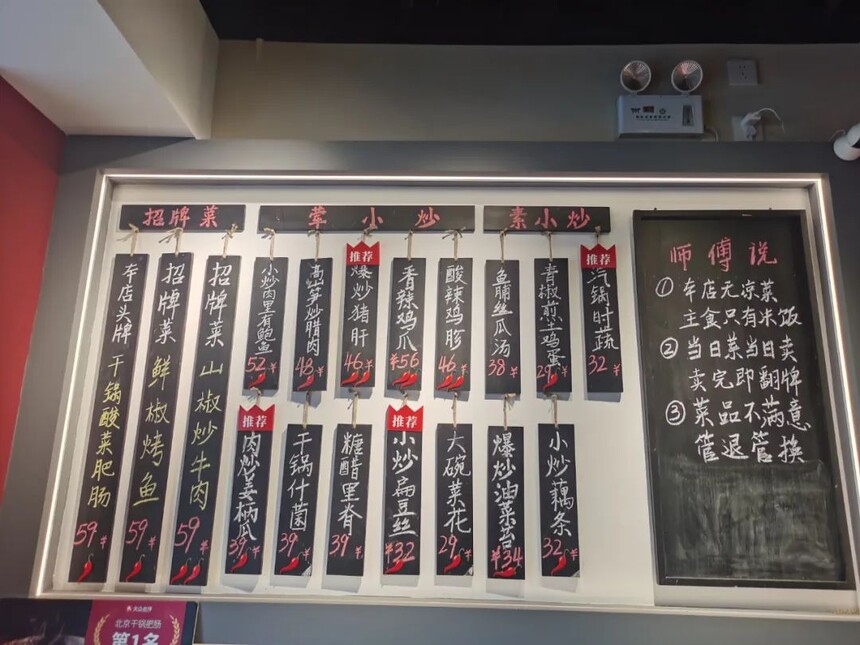 招牌菜
荤小炒
素小炒
本店头牌 干锅酸菜肥肠 59¥
招牌菜 鲜椒烤鱼 59¥
招牌菜 山椒炒牛肉 59¥
小炒肉里有鲍鱼 52¥
高山笋炒腊肉 48¥
推荐
爆炒猪肝 46¥
香辣鸡爪 ¥56
酸辣鸡胗 46¥
鱼脯丝瓜汤 38¥
青椒煎土鸡蛋 29¥
推荐
汽锅时蔬 32¥
推荐
肉炒姜柄瓜 39¥
干锅什菌 39¥
糖醋里脊 39¥
推荐
小炒扁豆丝 ¥32
大碗菜花 29¥
爆炒油菜苔 ¥34
小炒藕条 32¥
师傅说
① 本店无凉菜
主食只有米饭
② 当日菜当日卖
卖完即翻牌
③ 菜品不满意
管退管换
大众点评
北京干锅肥肠
第1名